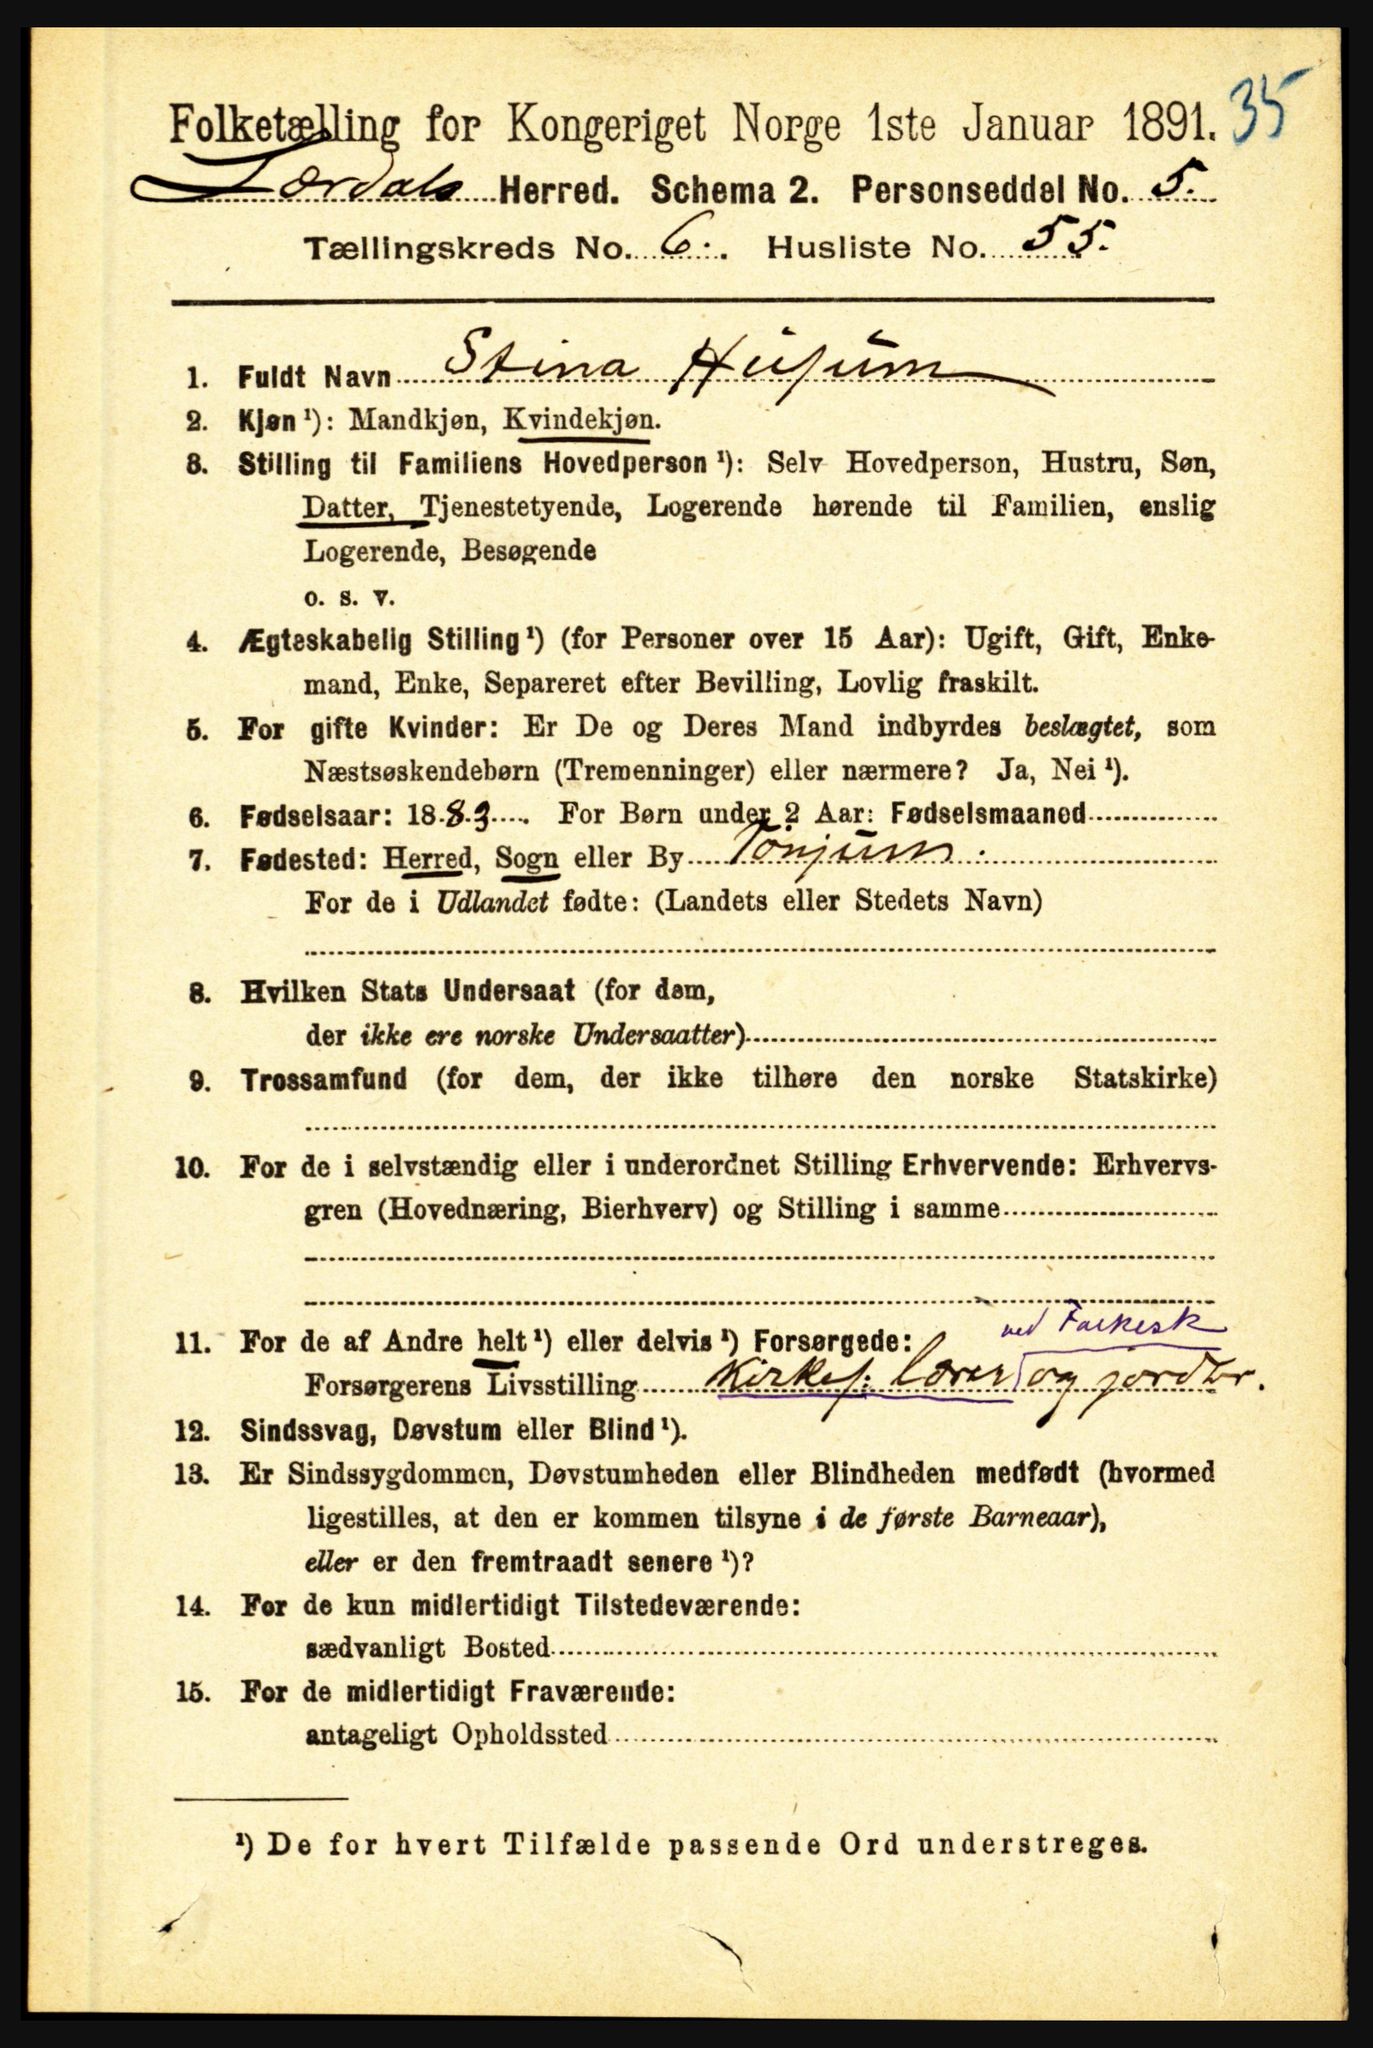 Folketælling for Kongeriget Norge 1ste Januar 1891. 35
Lærdals Herred. Schema 2. Personseddel No. 5.
Tællingskreds No. 6. Husliste No. 55.
1. Fuldt Navn Stina Husum
2. Kjøn ¹): Mandkjøn, Kvindekjøn.
3. Stilling til Familiens Hovedperson ¹): Selv Hovedperson, Hustru, Søn,
Datter, Tjenestetyende, Logerende hørende til Familien, enslig
Logerende, Besøgende
o. s. v.
4. Ægteskabelig Stilling ¹) (for Personer over 15 Aar): Ugift, Gift, Enke-
mand, Enke, Separeret efter Bevilling, Lovlig fraskilt.
5. For gifte Kvinder: Er De og Deres Mand indbyrdes beslægtet, som
Næstsøskendebørn (Tremenninger) eller nærmere? Ja, Nei ¹).
6. Fødselsaar: 1883. For Børn under 2 Aar: Fødselsmaaned
7. Fødested: Herred, Sogn eller By Tønjum.
For de i Udlandet fødte: (Landets eller Stedets Navn)
8. Hvilken Stats Undersaat (for dem,
der ikke ere norske Undersaatter)
9. Trossamfund (for dem, der ikke tilhøre den norske Statskirke)
10. For de i selvstændig eller i underordnet Stilling Erhvervende: Erhvervs-
gren (Hovednæring, Bierhverv) og Stilling i samme
ved Folkesk
11. For de af Andre helt ¹) eller delvis ¹) Forsørgede:
Forsørgerens Livsstilling Kirkes: lærer og jordbr.
12. Sindssvag, Døvstum eller Blind ¹).
13. Er Sindssygdommen, Døvstumheden eller Blindheden medfødt (hvormed
ligestilles, at den er kommen tilsyne i de første Barneaar),
eller er den fremtraadt senere ¹)?
14. For de kun midlertidigt Tilstedeværende:
sædvanligt Bosted
15. For de midlertidigt Fraværende:
antageligt Opholdssted
¹) De for hvert Tilfælde passende Ord understreges.